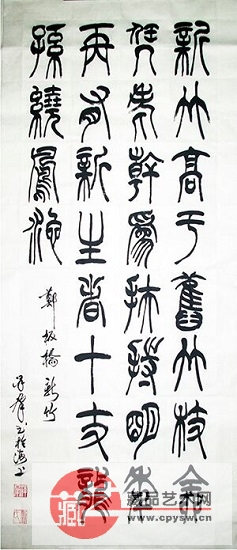 新竹高于舊竹枝全
凭老幹為扶持明年
再有新生者十丈龍
孫繞鳳池
鄭板橋 新竹
藏品艺术网
www.cpysw.cn